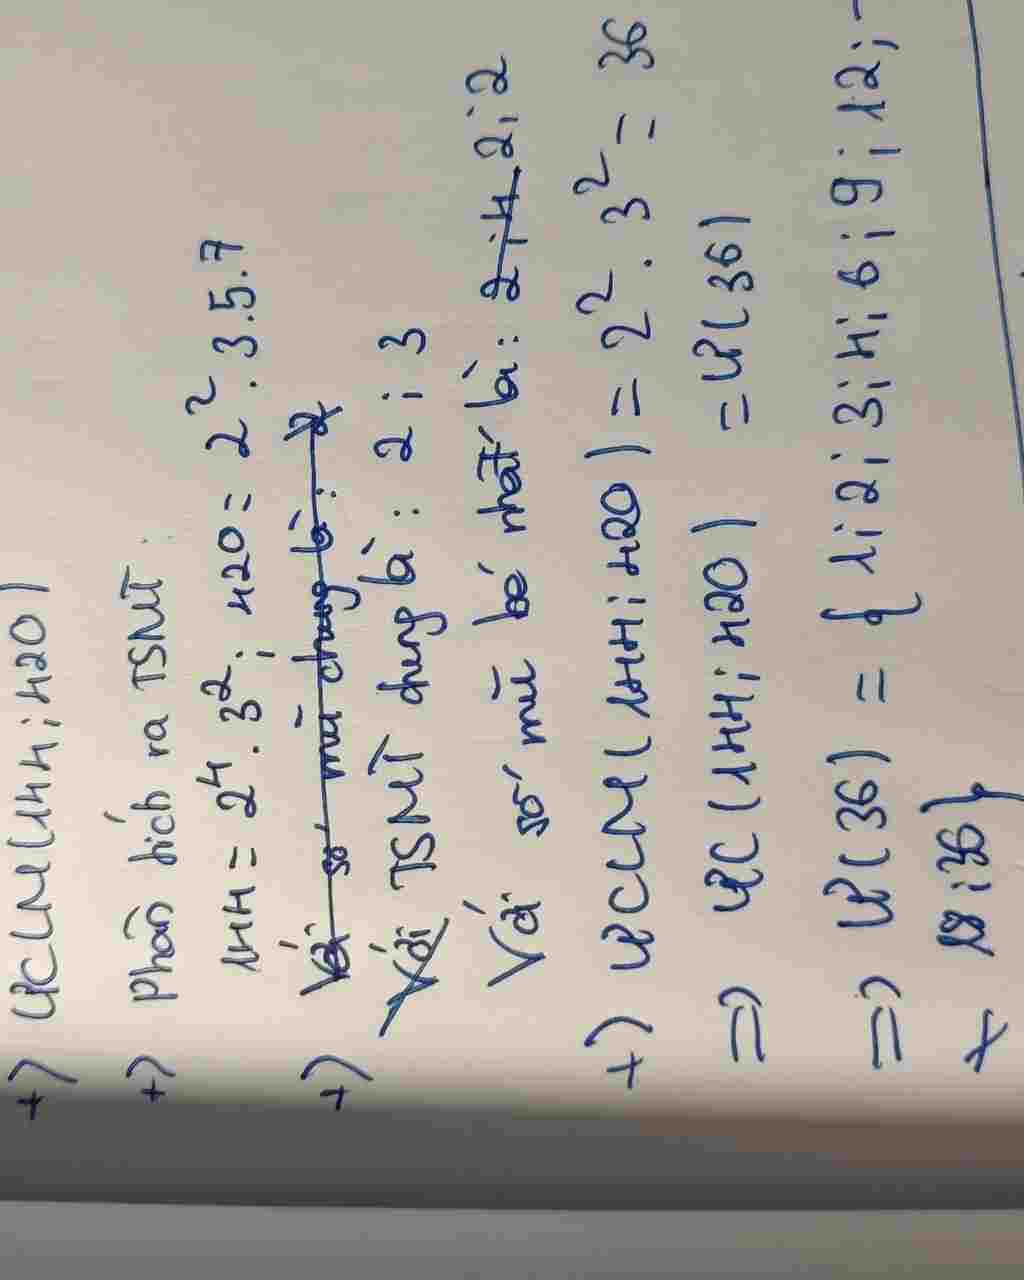 +) ƯCLN(144; 420)
+) Phân tích ra TSNT:
144 = 2⁴ . 3²; 420 = 2² . 3.5.7
+) Với số mũ chung là: 2
Với TSNT chung là: 2; 3
Với số mũ bé nhất là: 2; 4 2; 2
+) ƯCLN(144; 420) = 2² . 3² = 36
=) ƯC(144; 420) = Ư(36)
=) Ư(36) = { 1; 2; 3; 4; 6; 9; 12; -
+ 18; 36}